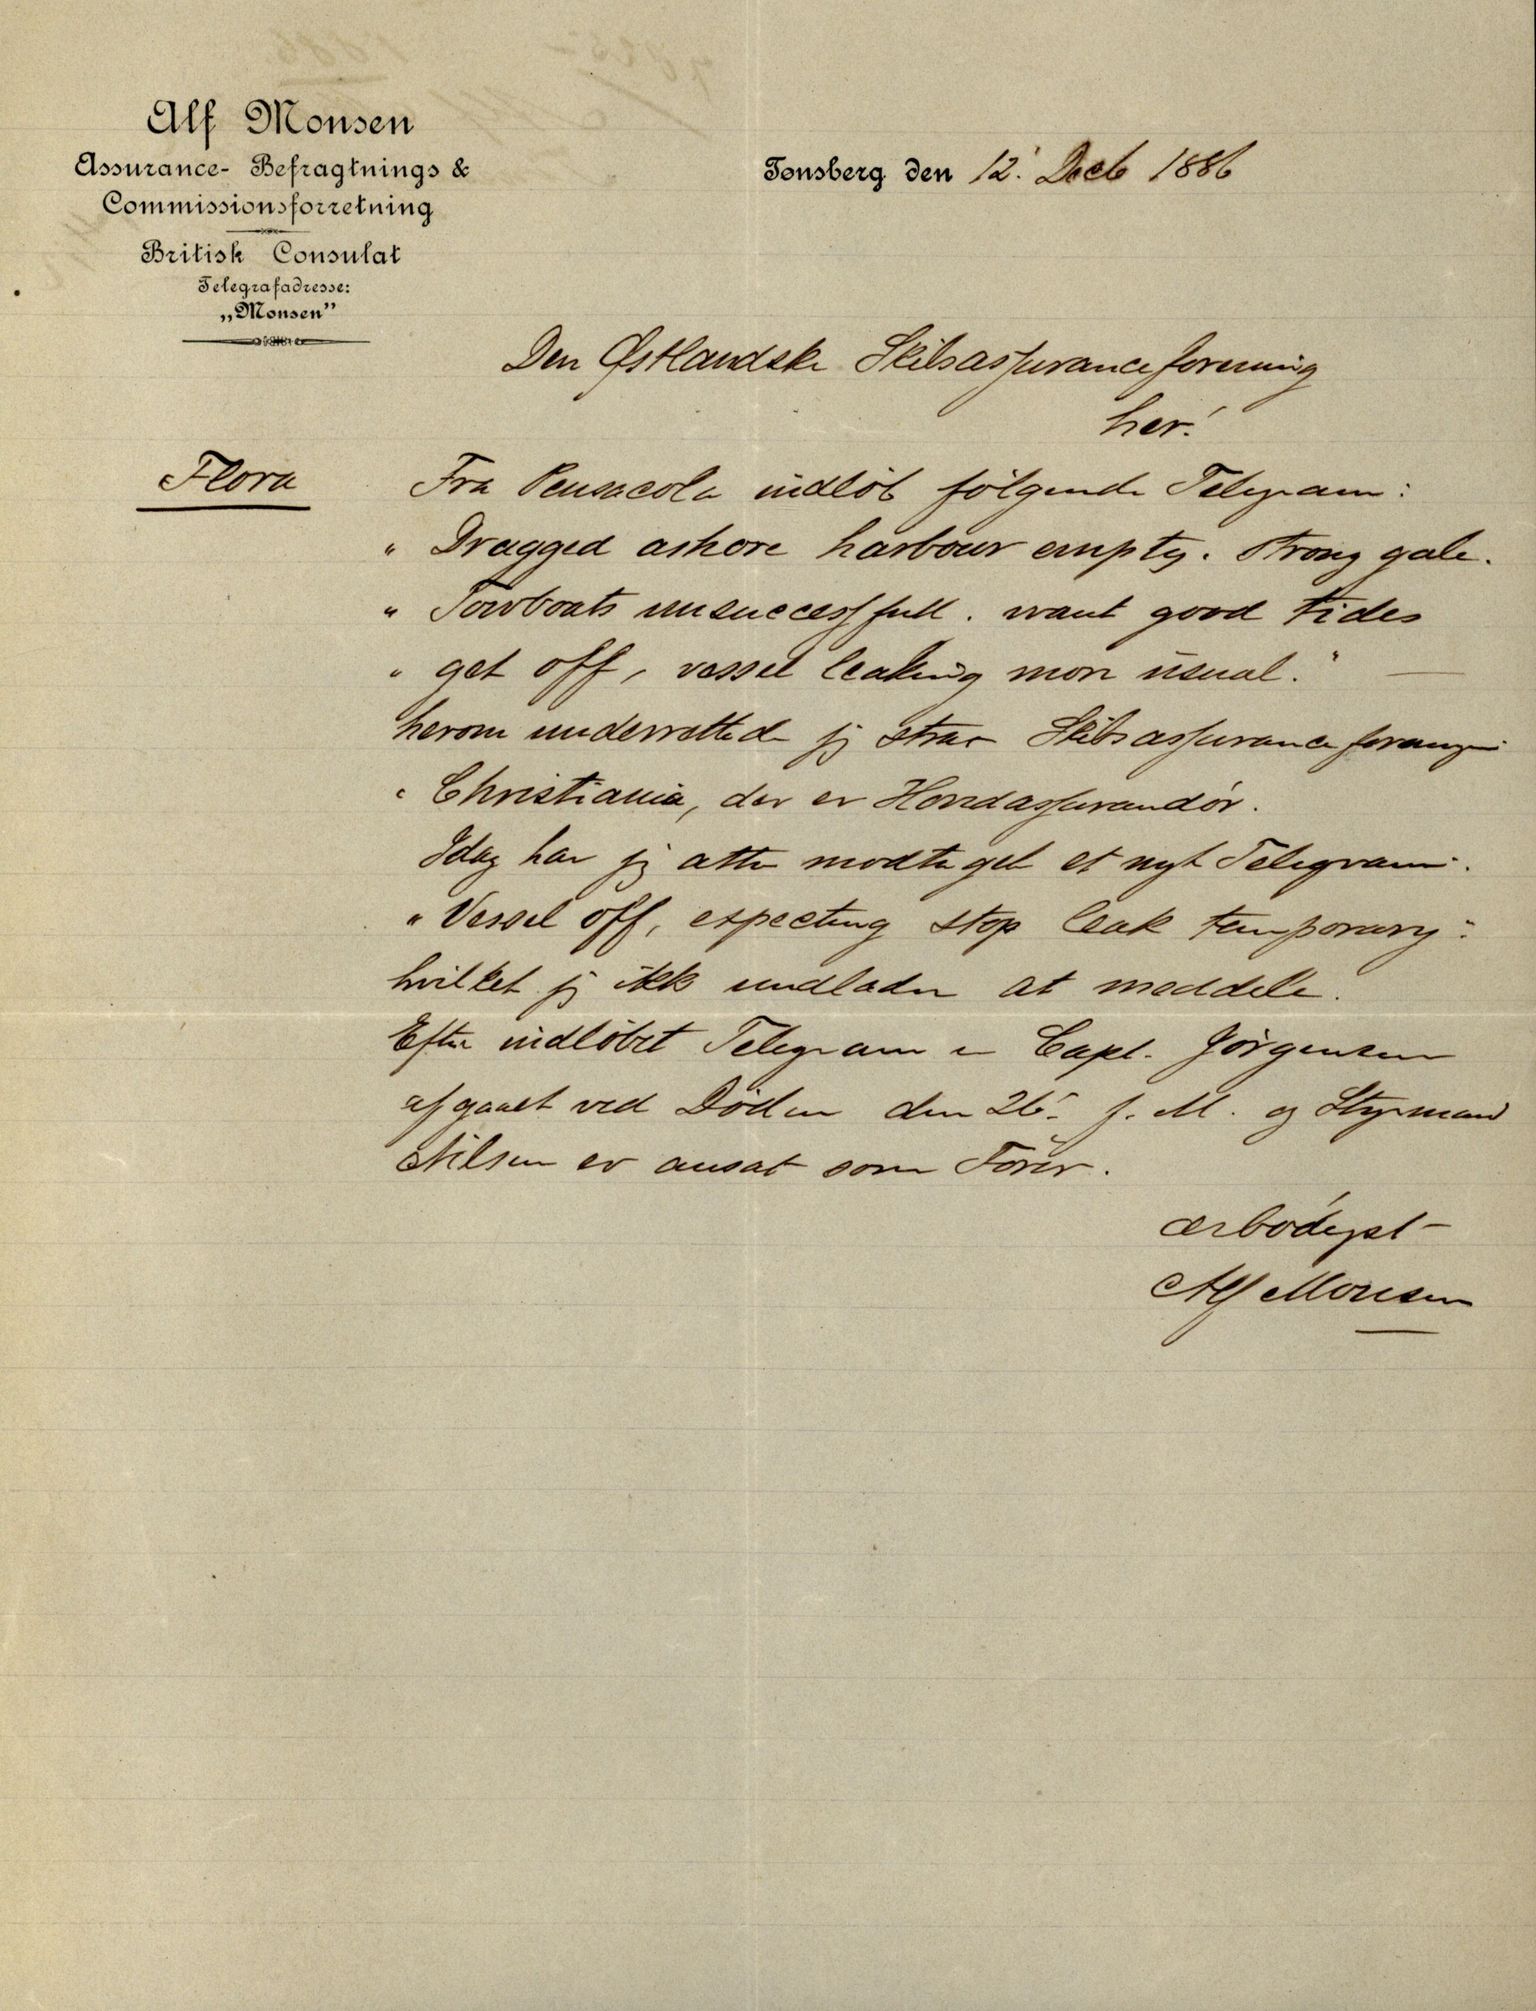 Alf Monsen
Assurance- Befragtnings &
Commissionsforretning
British Consulat
Telegrafadresse:
„Monsen”
Tønsberg den 12' Decb 1886
Den Østlandske Skibsassuranceforening
her!
Flora
Fra Pensacola indløb følgende Telegram:
" Dragged ashore harbour empty. strong gale.
" Towboats unsuccessfull. want good tides
" get off, vessel leaking more usual."
herom underrettede jeg strax Skibsassuranceforeningen
i Christiania, der er Hovedassurandør.
Idag har jeg atter modtaget et nyt Telegram.
" Vessel off, expecting stop leak temporary"
hvilket jeg ikke undlader at meddele.
Efter indløbet Telegram er Capt. Jørgensen
afgaaet ved Døden den 26' f. M. og Styrmand
Nilsen er ansat som Fører.
ærbødigst
Alf Monsen